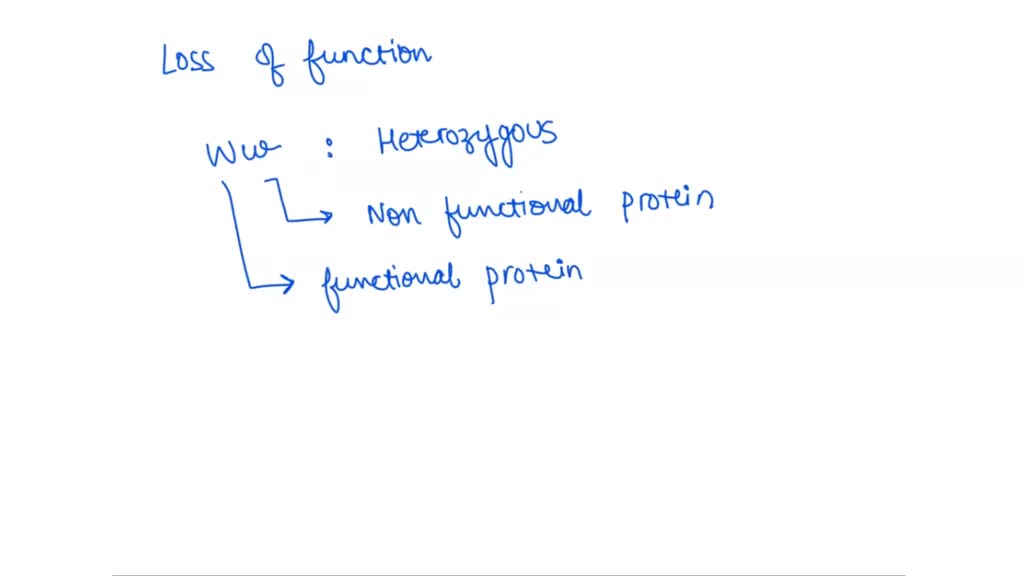 Loss of function
Ww : Heterozygous
Non functional protein
functional protein